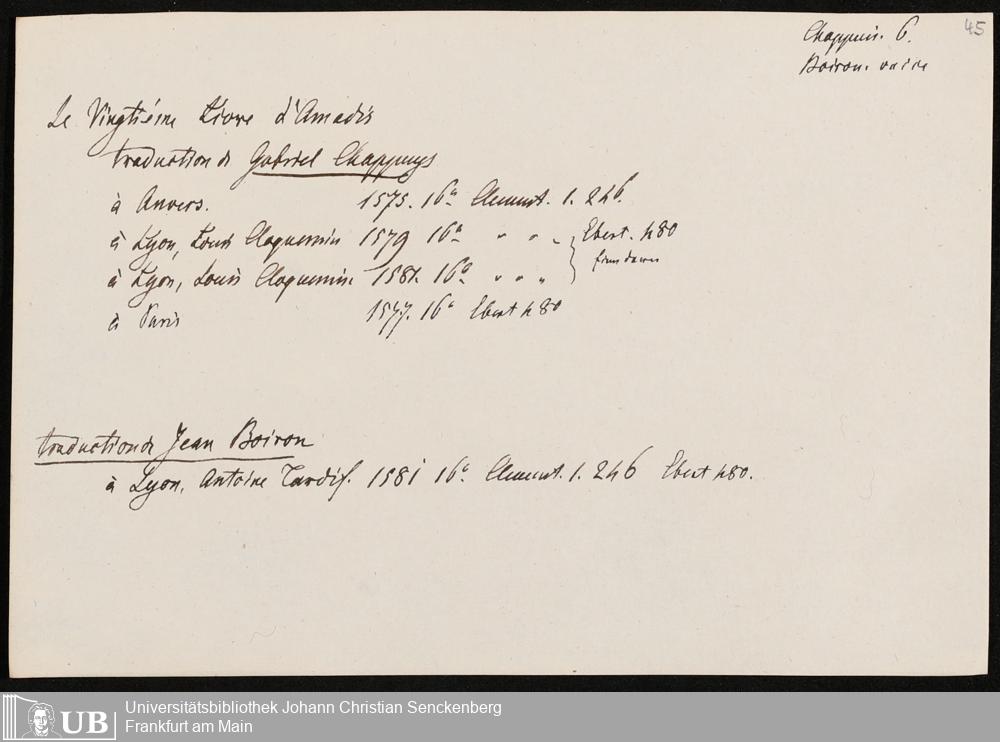 45
Chappuis. 6.
Boiron.
Le Vingtiéme Livre d'Amadis
traduction de Gabriel Chappuys
à Anvers. 1575. 16° Clement. 1. 246.
à Lyon, Louis Cloquemin 1579 16° " " " Ebert. 480
à Lyon, Louis Cloquemin. 1581. 16° " " "
à Paris 1577. 16° Ebert 480
traduction de Jean Boiron
à Lyon, Antoine Tardif. 1581 16° Clement. 1. 246 Ebert 480.
UB
Universitätsbibliothek Johann Christian Senckenberg
Frankfurt am Main